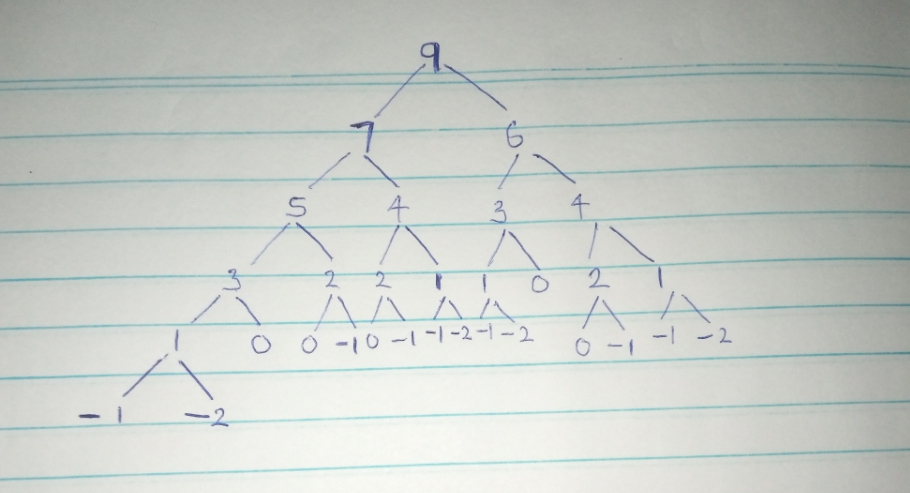 9
7 6
5 4 3 4
3 2 2 1 1 0 2 1
1 0 0 -1 0 -1 -1 -2 -1 -2 0 -1 -1 -2
-1 -2